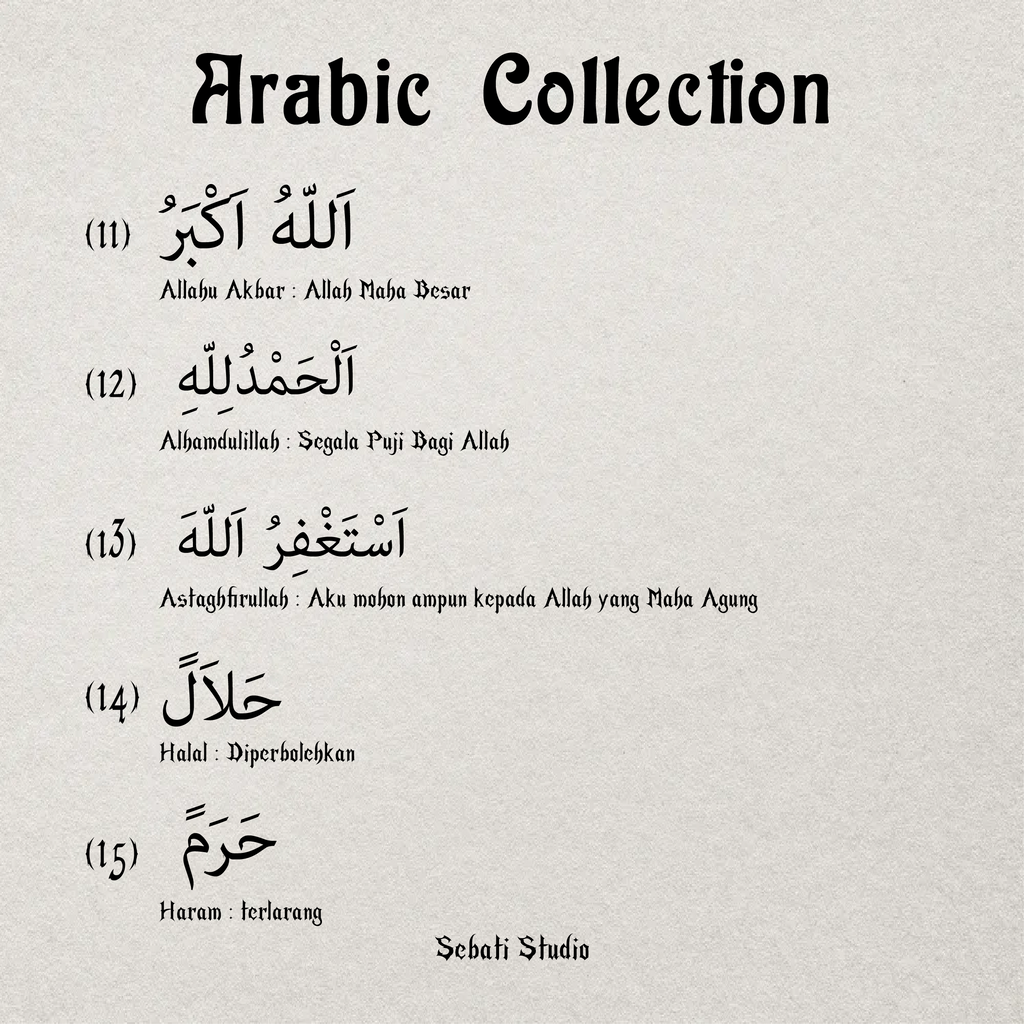 Arabic Collection
(11) اَللّٰهُ اَكْبَرُ
Allahu Akbar : Allah Maha Besar
(12) اَلْحَمْدُلِلّٰهِ
Alhamdulillah : Segala Puji Bagi Allah
(13) اَسْتَغْفِرُ اَللّٰهَ
Astaghfirullah : Aku mohon ampun kepada Allah yang Maha Agung
(14) حَلاَلً
Halal : Diperbolehkan
(15) حَرَمً
Haram : terlarang
Sebati Studio